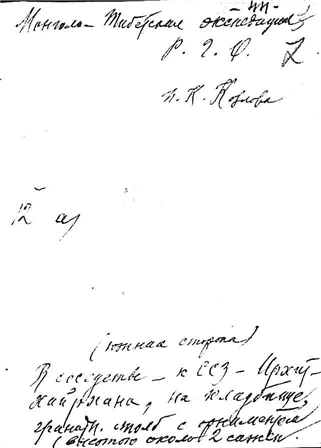 Монголо-Тибетская экспедиция
Р. Г. О.
П. К. Козлова
12 а)
(южная сторона)
В соседстве - к ССЗ - Ирхит-
хайрхана, на кладбище,
гранитн. столб с орнаментом
(высотою около 2 сажен